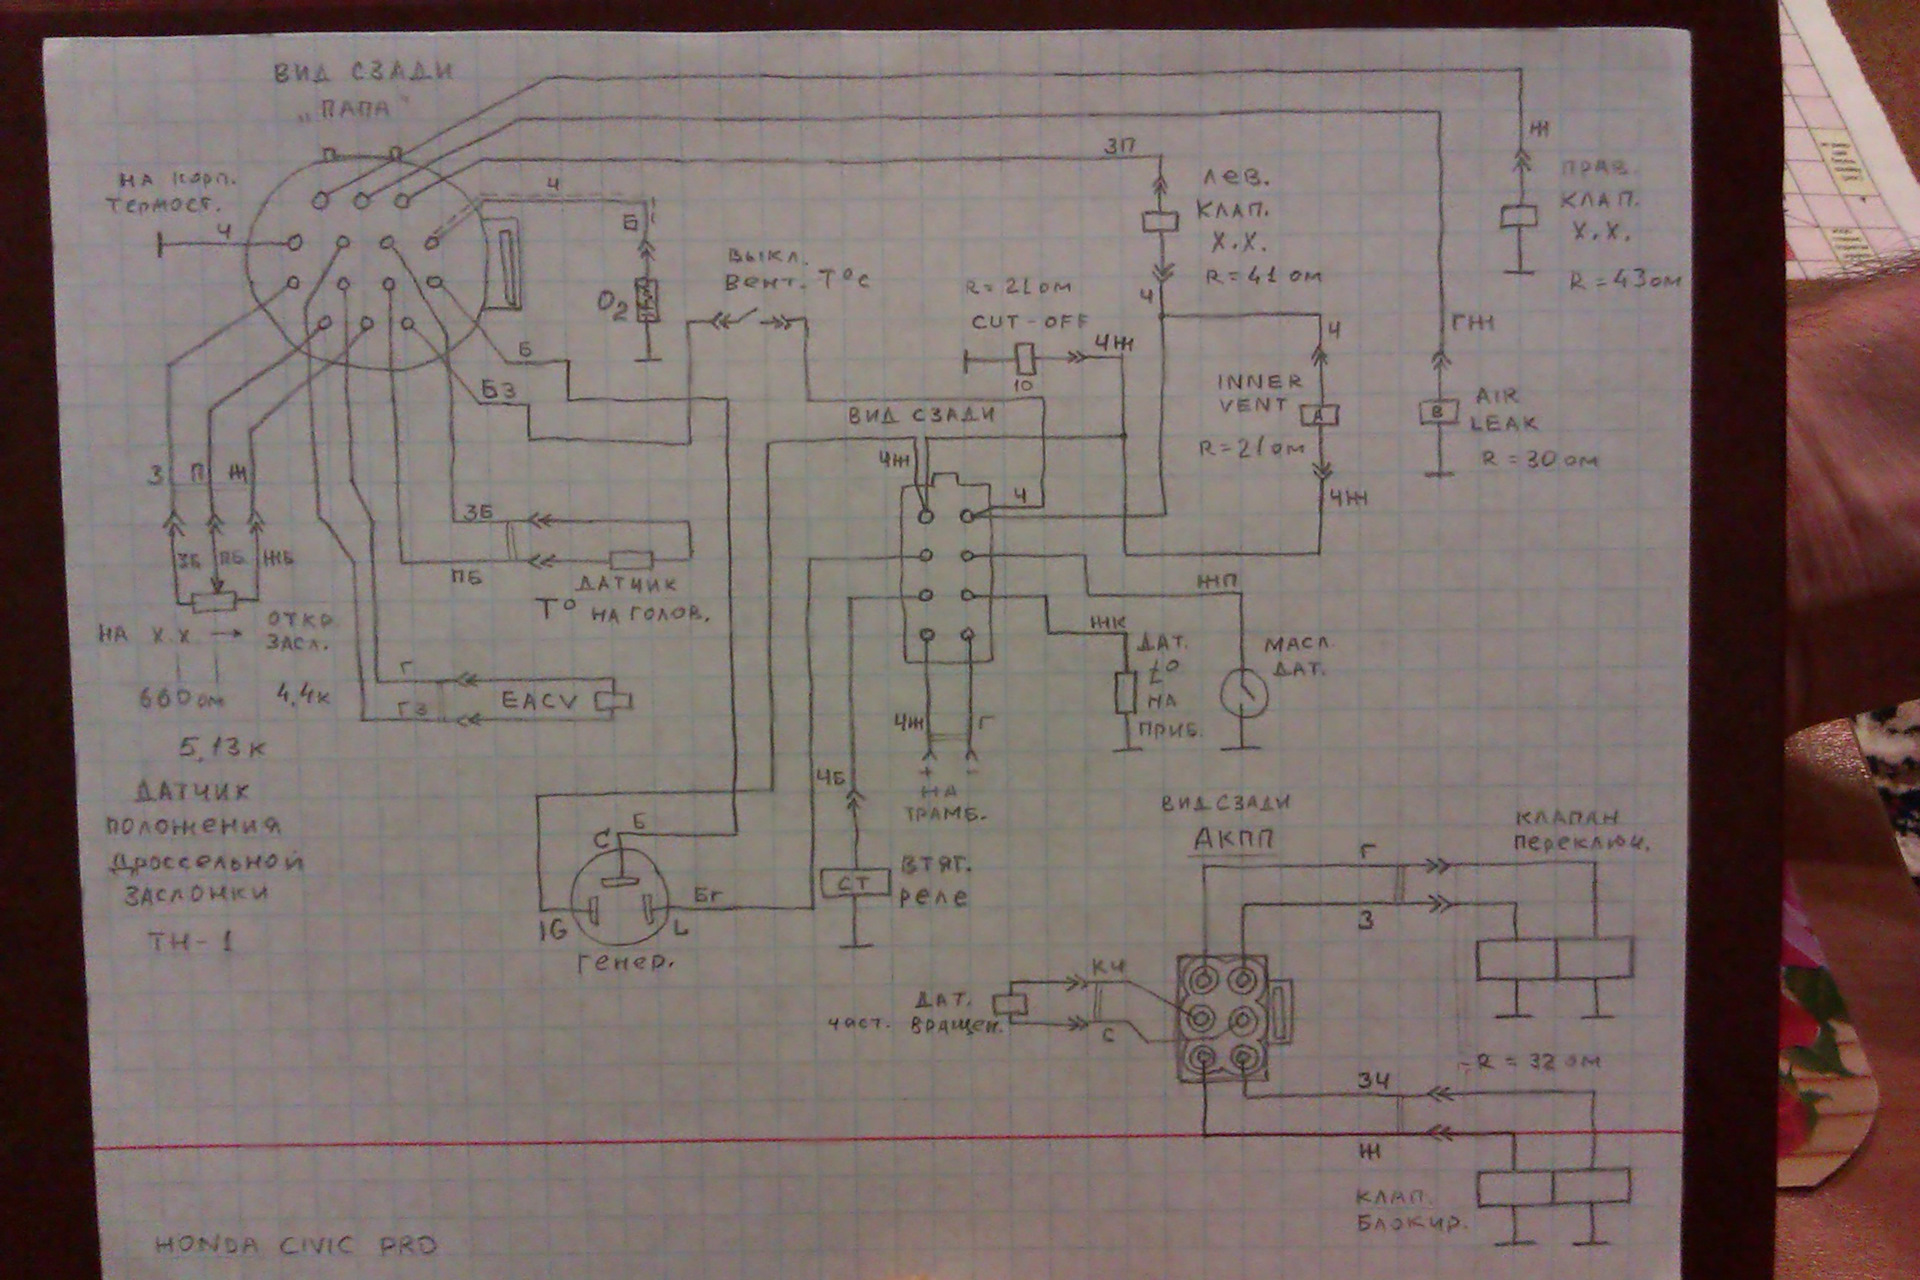 ВИД СЗАДИ
„ПАПА"
НА КОРП.
ТЕРМОСТ.
Ч
Ч
Б
O₂
ВЫКЛ.
ВЕНТ. T°C
ЗП
ЛЕВ.
КЛАП.
Х.Х.
R = 41 ом
Ж
ПРАВ.
КЛАП.
Х.Х.
R = 43 ом
R = 21 ом
CUT-OFF
10
ЧЖ
Ч
Ч
ГЖ
INNER
VENT
A
R = 21 ом
ЧЖ
B
AIR
LEAK
R = 30 ом
Б
БЗ
ВИД СЗАДИ
ЧЖ
Ч
З
П
Ж
ЗБ
ПБ
ЖБ
НА Х.Х →
ОТКР
ЗАСЛ.
660 ом
4,4к
5,13к
ДАТЧИК
ПОЛОЖЕНИЯ
ДРОССЕЛЬНОЙ
ЗАСЛОНКИ
TH-1
ЗБ
ПБ
ДАТЧИК
T° НА ГОЛОВ.
Г
ГЗ
EACV
ЖП
ЖК
ДАТ.
t°
НА
ПРИБ.
МАСЛ
ДАТ.
ЧЖ
Г
+ -
НА
ТРАМБ.
ЧБ
СТ
ВТЯГ.
РЕЛЕ
C
Б
IG
L
БГ
ГЕНЕР.
ВИД СЗАДИ
АКПП
Г
З
КЛАПАН
ПЕРЕКЛЮЧ.
ДАТ.
ЧАСТ. ВРАЩЕН.
КЧ
С
R = 32 ом
ЗЧ
Ж
КЛАП.
БЛОКИР.
HONDA CIVIC PRO